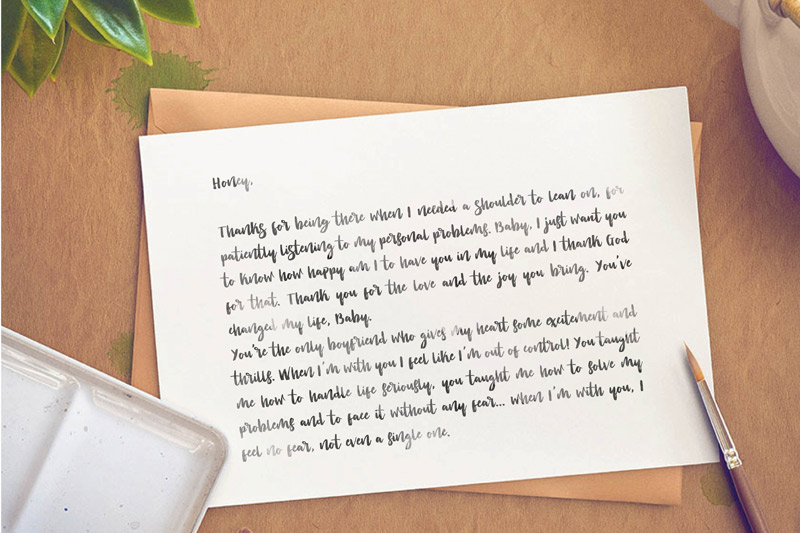 Honey,
Thanks for being there when I needed a shoulder to lean on, for
patiently listening to my personal problems. Baby, I just want you
to know how happy am I to have you in my life and I thank God
for that. Thank you for the love and the joy you bring. You've
changed my life, Baby.
You're the only boyfriend who gives my heart some excitement and
thrills. When I'm with you I feel like I'm out of control! You taught
me how to handle life seriously, you taught me how to solve my
problems and to face it without any fear... when I'm with you, I
feel no fear, not even a single one.